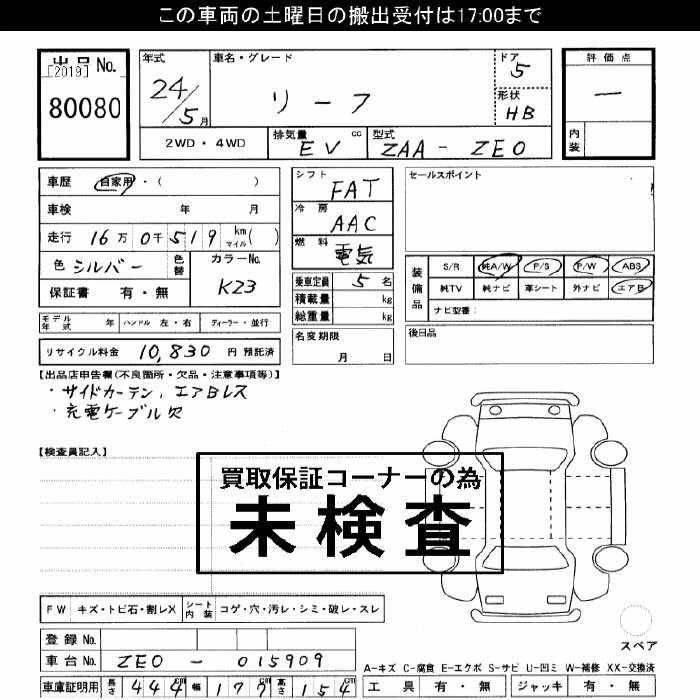 この車両の土曜日の搬出受付は17:00まで
出品 No.
[2019]
80080
年式
24/5月
車名・グレード
リーフ
ドア
5
形状
HB
評価点
―
内装
2WD・4WD
排気量 cc
EV
型式
ZAA-ZE0
車歴 自家用・( )
車検 年 月
走行 16万0千519 km マイル( )
色 シルバー 色替
カラーNo.
K23
保証書 有・無
シフト
FAT
冷房
AAC
燃料
電気
乗車定員 5名
積載量 kg
総重量 kg
名変期限
月 日
セールスポイント
装備品
S/R 純A/W P/S P/W ABS
純TV 純ナビ 革シート 外ナビ エアB
ナビ型番:
後日品
モデル年式 年 ハンドル 左・右 ディーラー・並行
リサイクル料金 10,830 円 預託済
【出品店申告欄(不良箇所・欠品・注意事項等)】
・サイドカーテン、エアBレス
・充電ケーブル欠
【検査員記入】
買取保証コーナーの為
未検査
FW キズ・トビ石・割レX シート内装 コゲ・穴・汚レ・シミ・破レ・スレ
登録No.
車台No. ZE0-015909
車庫証明用 長さ 444cm 幅 177cm 高さ 154cm
スペア
A-キズ C-腐食 E-エクボ S-サビ U-凹ミ W-補修 XX-交換済
工具 有・無 ジャッキ 有・無